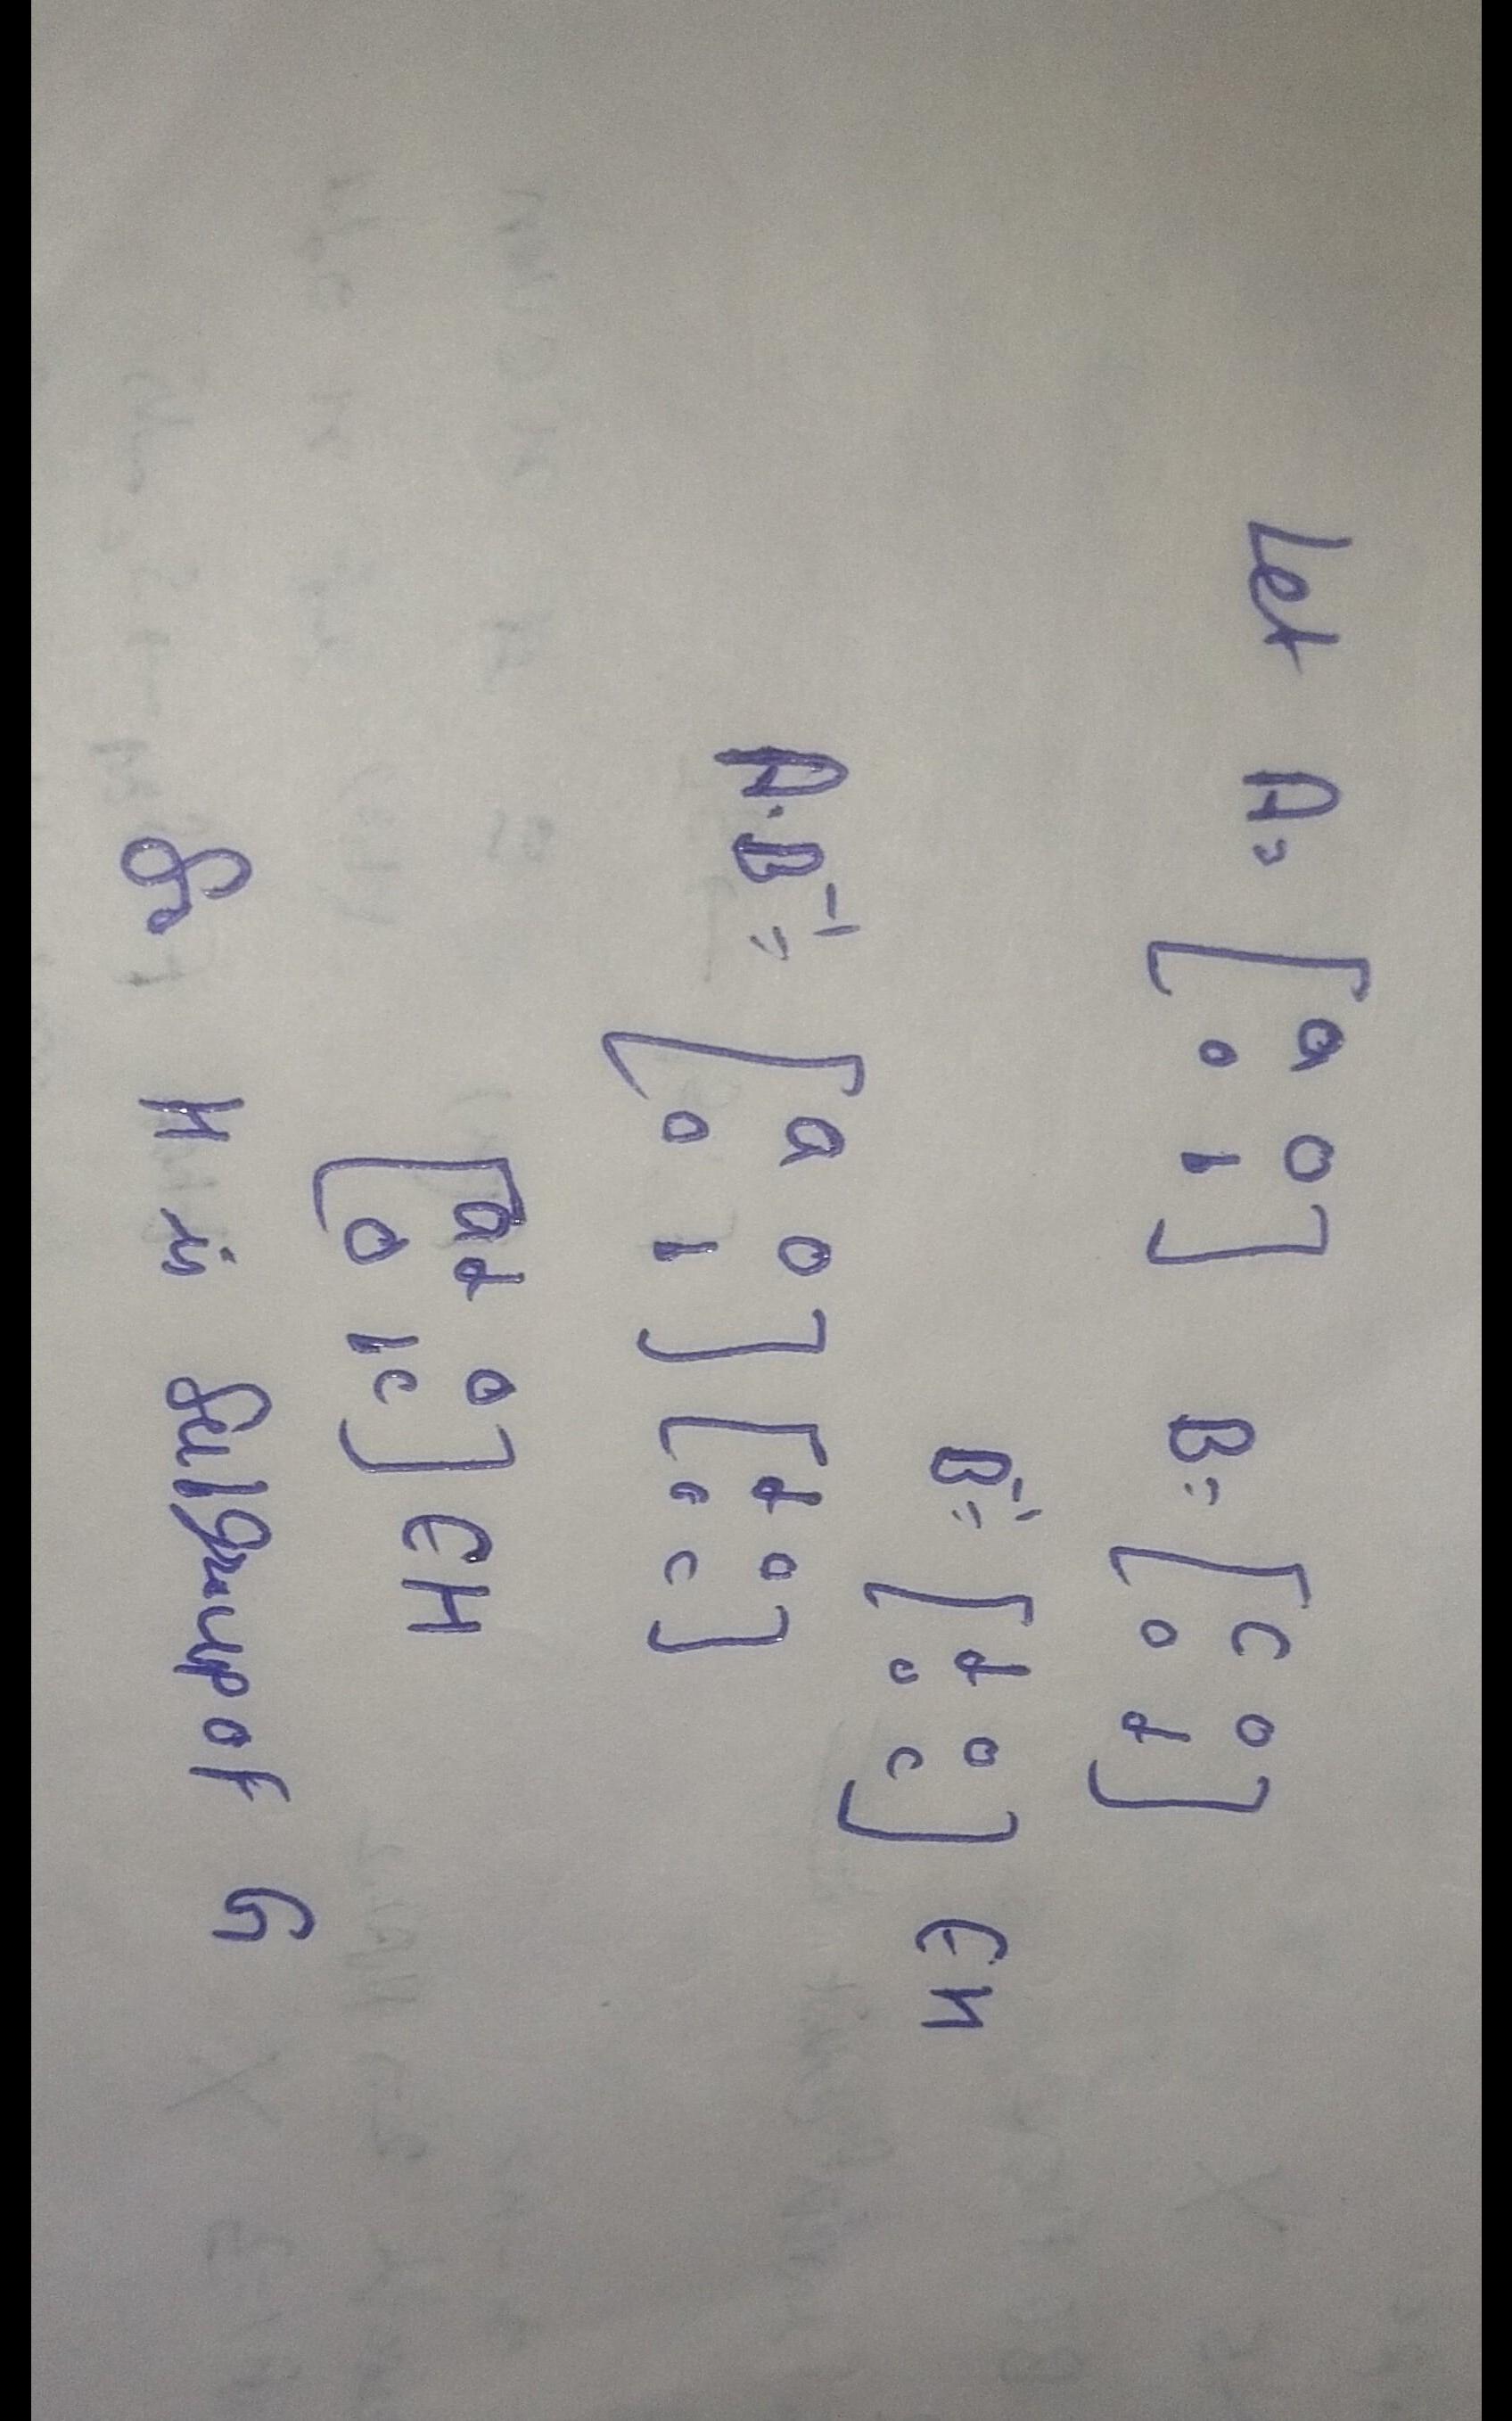 Let A = [ a 0 B = [ c 0
0 1 ] 0 d ]
B⁻¹ = [ d 0
0 c ] ∈ H
A·B⁻¹ = [ a 0 ] [ d 0
0 1 ] 0 c ]
[ ad 0
0 1c ] ∈ H
So H is Subgroup of G